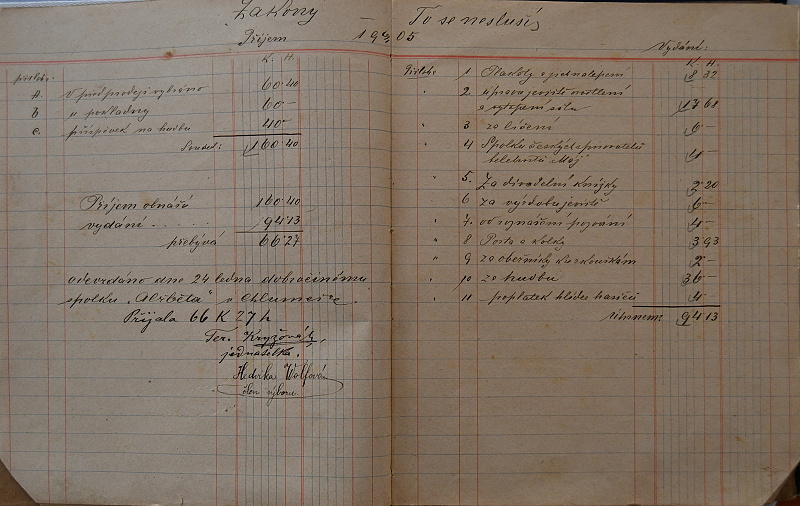 Zákony
Příjem 19 5/1 05
K. H.
příloh:
A. V předprodeji vybráno 60·40
B u pokladny 60—
C. příspěvek na hudbu 40—
Souhrn: 160·40
Příjem obnáší 160·40
vydání . . . . . 94·13
přebývá 66·27
odevzdáno dne 24 ledna dobročinnému
spolku „Alžběta" v Chlumečku.
Přijala 66 K 27 h
Ter. Kryžová,
jednatelka.
Hedvika Wolfová
člen výboru
To se nesluší,
Vydání:
K. H.
Příloha 1 Plakáty s přelepením 8 32
" 2. úprava jeviště osvětlení
a vytopení sálu 17 61
" 3 za líčení 6 —
" 4 Spolku českých spisovatelů
beletristů „Máj" 4 —
" 5. Za divadelní knížky 2 20
6 za výzdobu jeviště 6 —
" 7. od roznášení pozvání 4 —
" 8 Pošta a kolky 3 93
" 9 za oběrníky ku zkouškám 2 —
" 10 za hudbu 36 —
" 11 poplatek hlídce hasičů 4 —
Souhrnem: 94 13